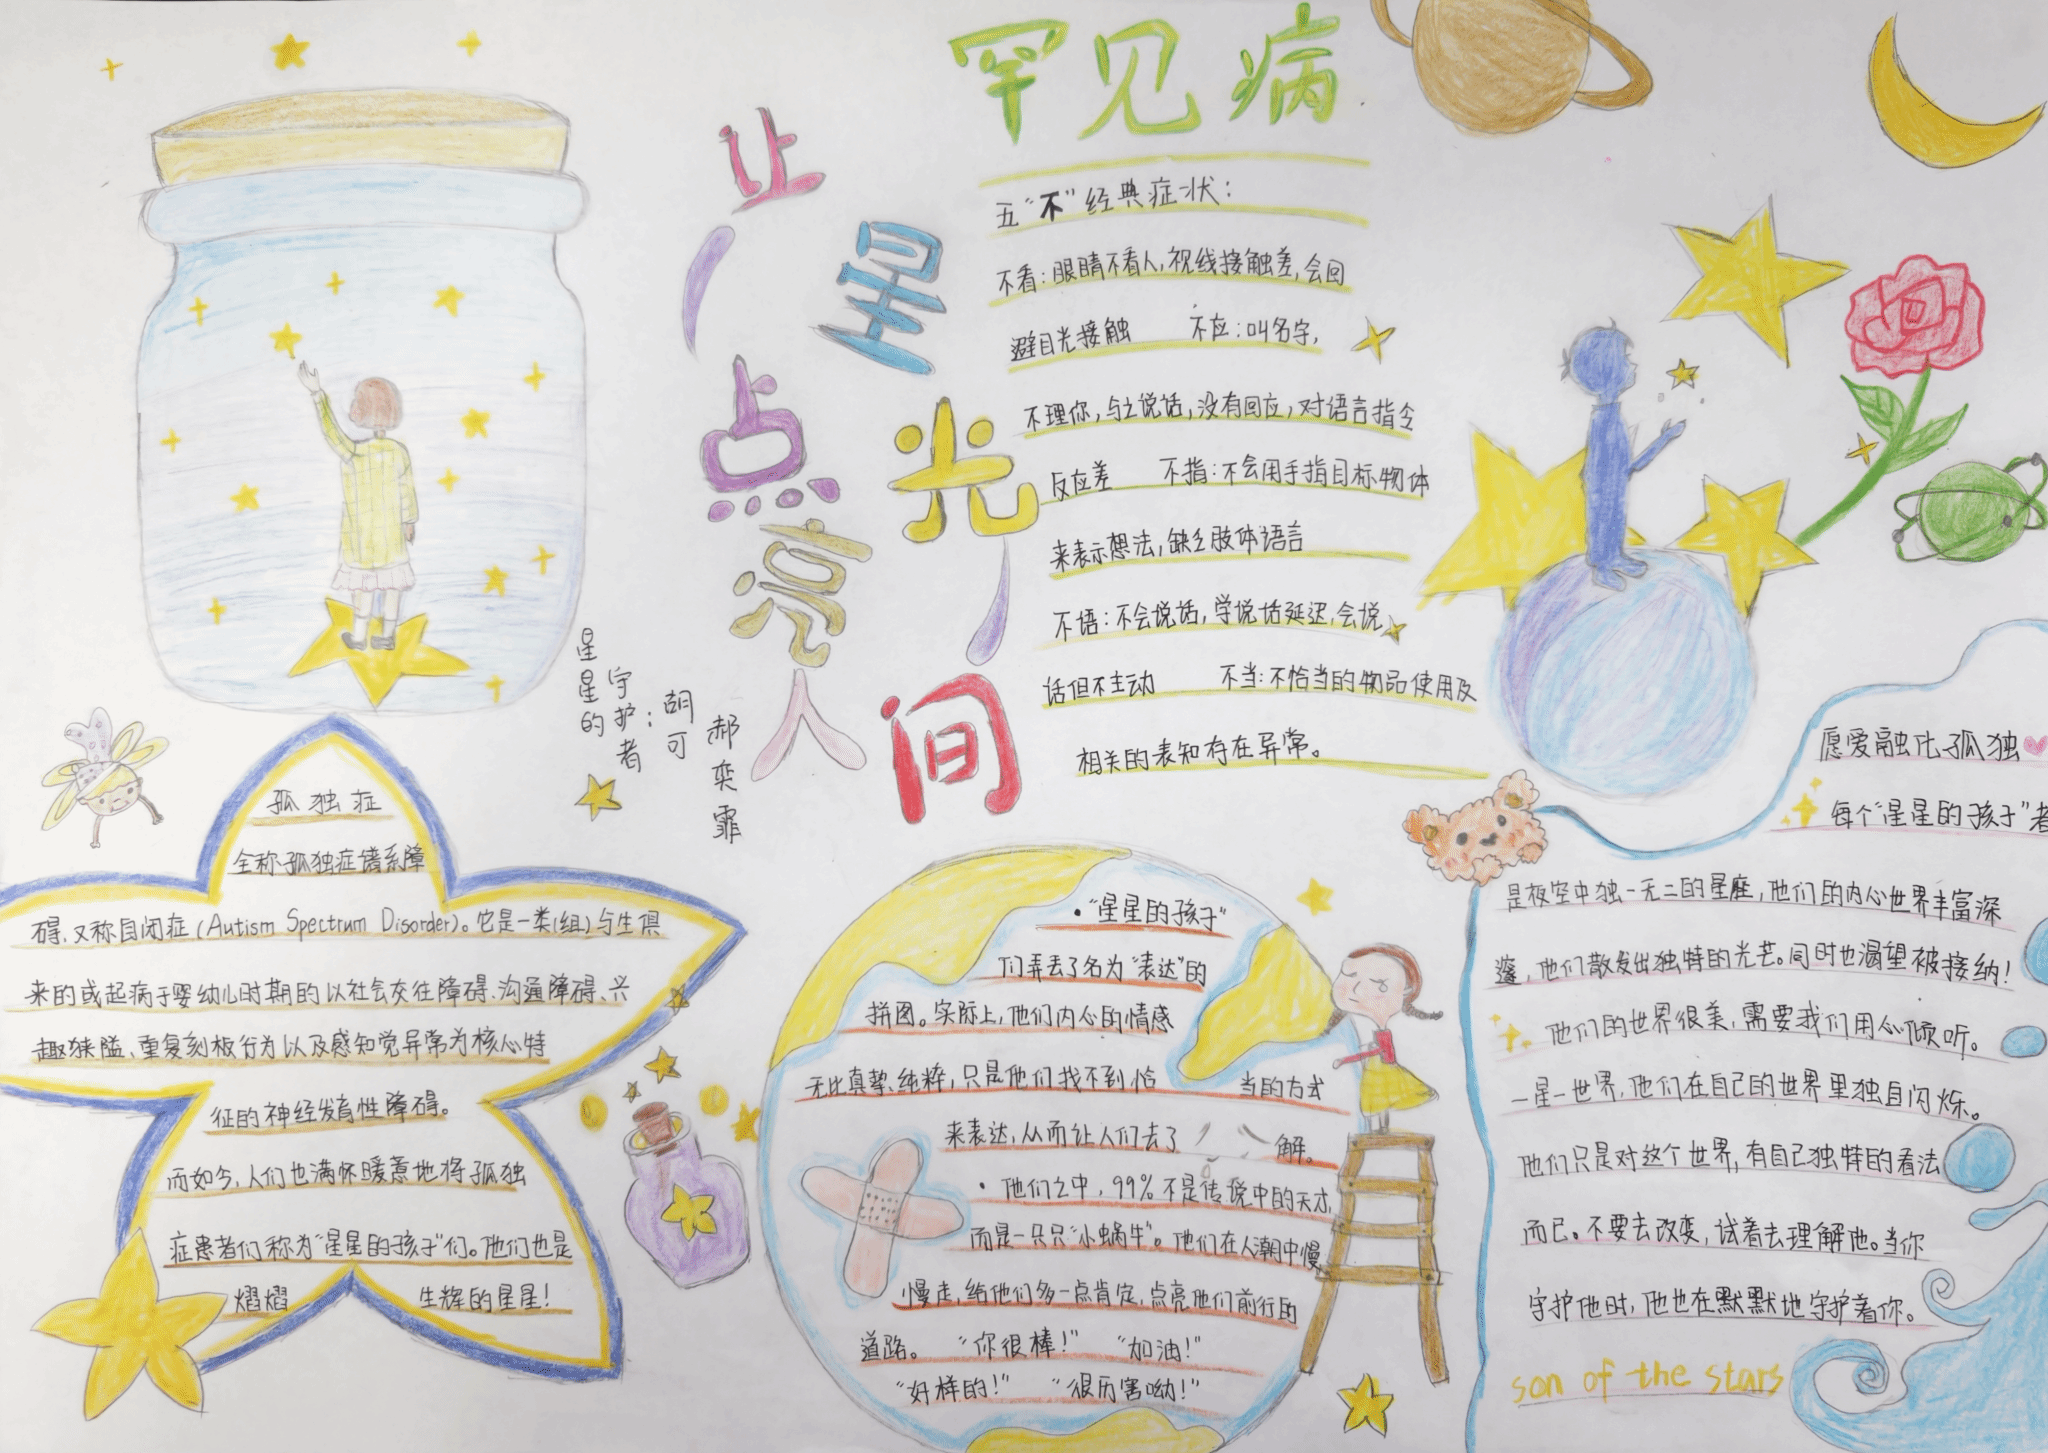 罕见病
让
星
光
点
亮
人
间
五“不”经典症状：
不看：眼睛不看人，视线接触差，会回
避目光接触 不应：叫名字，
不理你，与之说话，没有回应，对语言指令
反应差 不指：不会用手指目标物体
来表示想法，缺乏肢体语言
不语：不会说话，学说话延迟，会说
话但不主动 不当：不恰当的物品使用及
相关的表知存在异常。
星星的
守护者：
胡可
郝奕霏
孤独症
全称孤独症谱系障
碍，又称自闭症（Autism Spectrum Disorder）。它是一类（组）与生俱
来的或起病于婴幼儿时期的以社会交往障碍、沟通障碍、兴
趣狭隘、重复刻板行为以及感知觉异常为核心特
征的神经发育性障碍。
而如今，人们也满怀暖意地将孤独
症患者们称为“星星的孩子”们。他们也是
熠熠 生辉的星星！
·“星星的孩子”
们弄丢了名为“表达”的
拼图。实际上，他们内心的情感
无比真挚、纯粹，只是他们找不到恰 当的方式
来表达，从而让人们去了 解。
·他们之中，99%不是传说中的天才，
而是一只只“小蜗牛”。他们在人潮中慢
慢走，给他们多一点肯定，点亮他们前行的
道路。 “你很棒！” “加油！”
“好样的！” “很厉害呦！”
愿爱融化孤独
每个“星星的孩子”者
是夜空中独一无二的星座，他们的内心世界丰富深
邃，他们散发出独特的光芒。同时也渴望被接纳！
他们的世界很美，需要我们用心倾听。
一星一世界，他们在自己的世界里独自闪烁。
他们只是对这个世界，有自己独特的看法
而已。不要去改变，试着去理解他。当你
守护他时，他也在默默地守护着你。
son of the stars